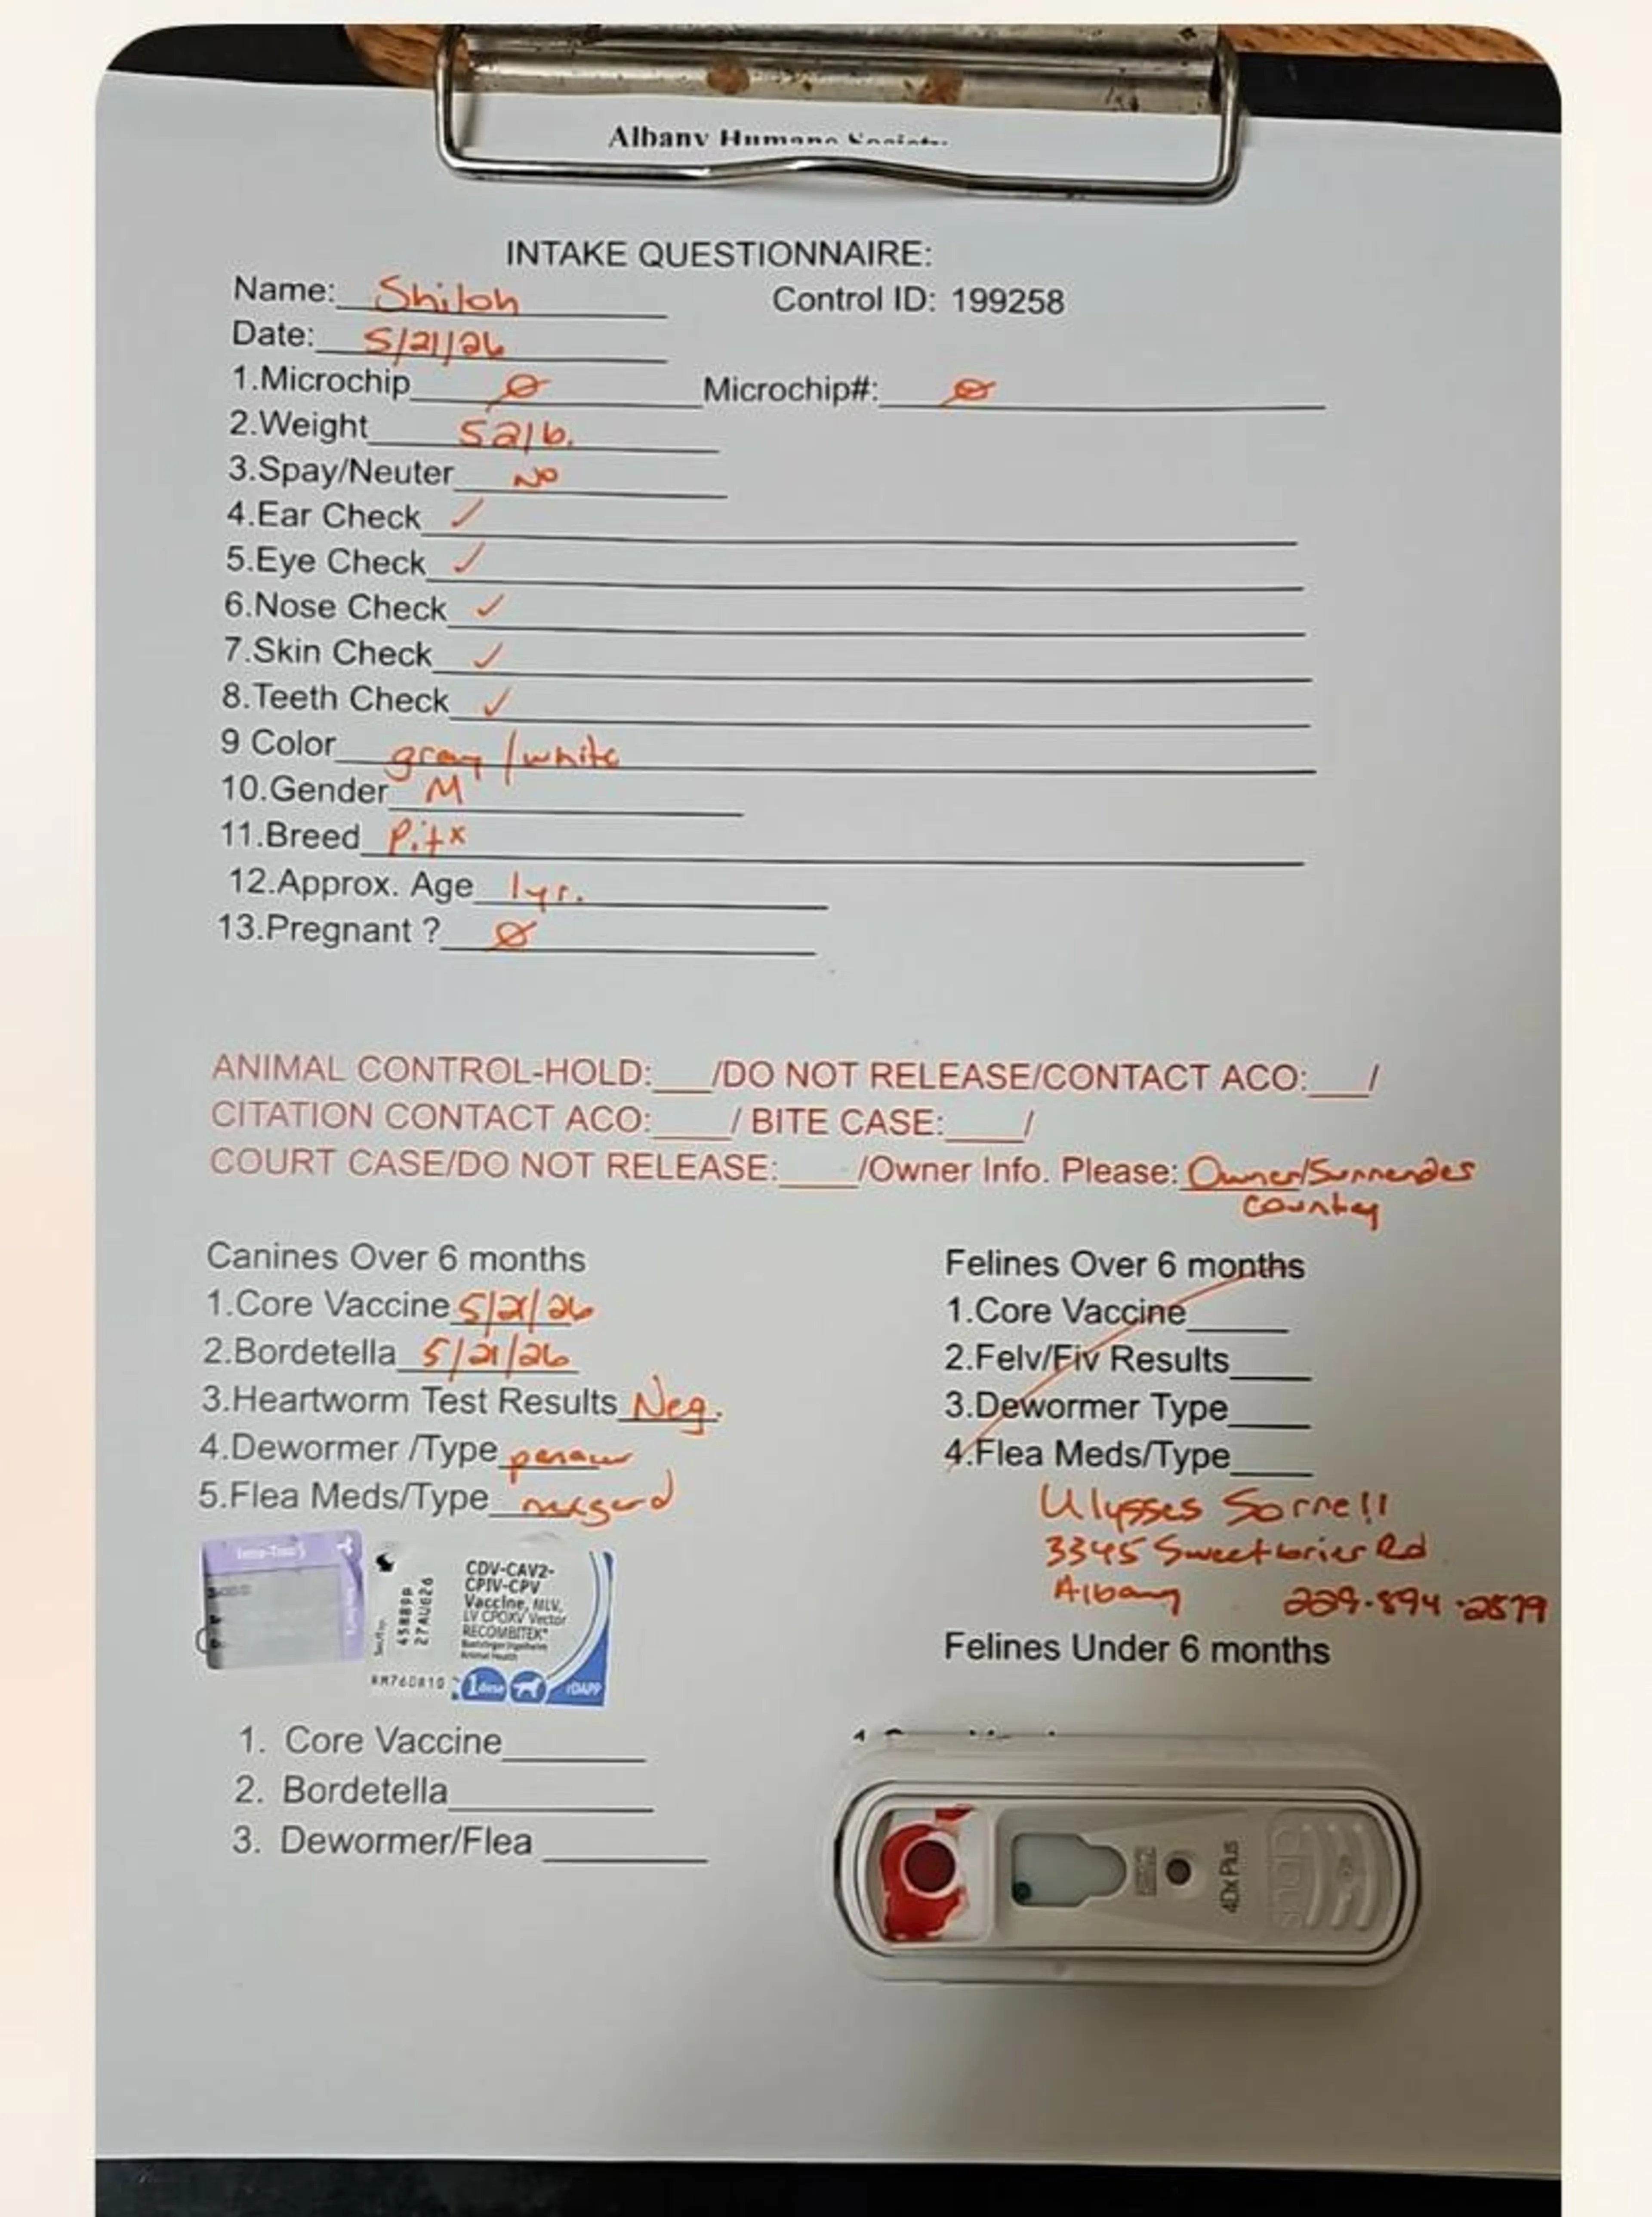 Albany Humane Society
INTAKE QUESTIONNAIRE:
Name: Shiloh
Control ID: 199258
Date: 5/21/26
1.Microchip Ø Microchip#: Ø
2.Weight 52lb.
3.Spay/Neuter NO
4.Ear Check ✓
5.Eye Check ✓
6.Nose Check ✓
7.Skin Check ✓
8.Teeth Check ✓
9 Color gray/white
10.Gender M
11.Breed Pitx
12.Approx. Age 1yr.
13.Pregnant ? Ø
ANIMAL CONTROL-HOLD:___/DO NOT RELEASE/CONTACT ACO:___/
CITATION CONTACT ACO:____/ BITE CASE:____/
COURT CASE/DO NOT RELEASE:____/Owner Info. Please: Owner/Surrender
County
Canines Over 6 months
1.Core Vaccine 5/21/26
2.Bordetella 5/21/26
3.Heartworm Test Results Neg.
4.Dewormer /Type
5.Flea Meds/Type nexgard
Felines Over 6 months
1.Core Vaccine
2.Felv/Fiv Results
3.Dewormer Type
4.Flea Meds/Type
Ulysses Sorrell
3345 Sweetbrier Rd
Albany 229-894-2579
Felines Under 6 months
45889P
27AUG26
CDV-CAV2-
CPIV-CPV
Vaccine, MLV,
LV CPOXV Vector
RECOMBITEK
Boehringer Ingelheim
Animal Health
1 dose
rDAPP
1. Core Vaccine
2. Bordetella
3. Dewormer/Flea
4Dx Plus
SNAP